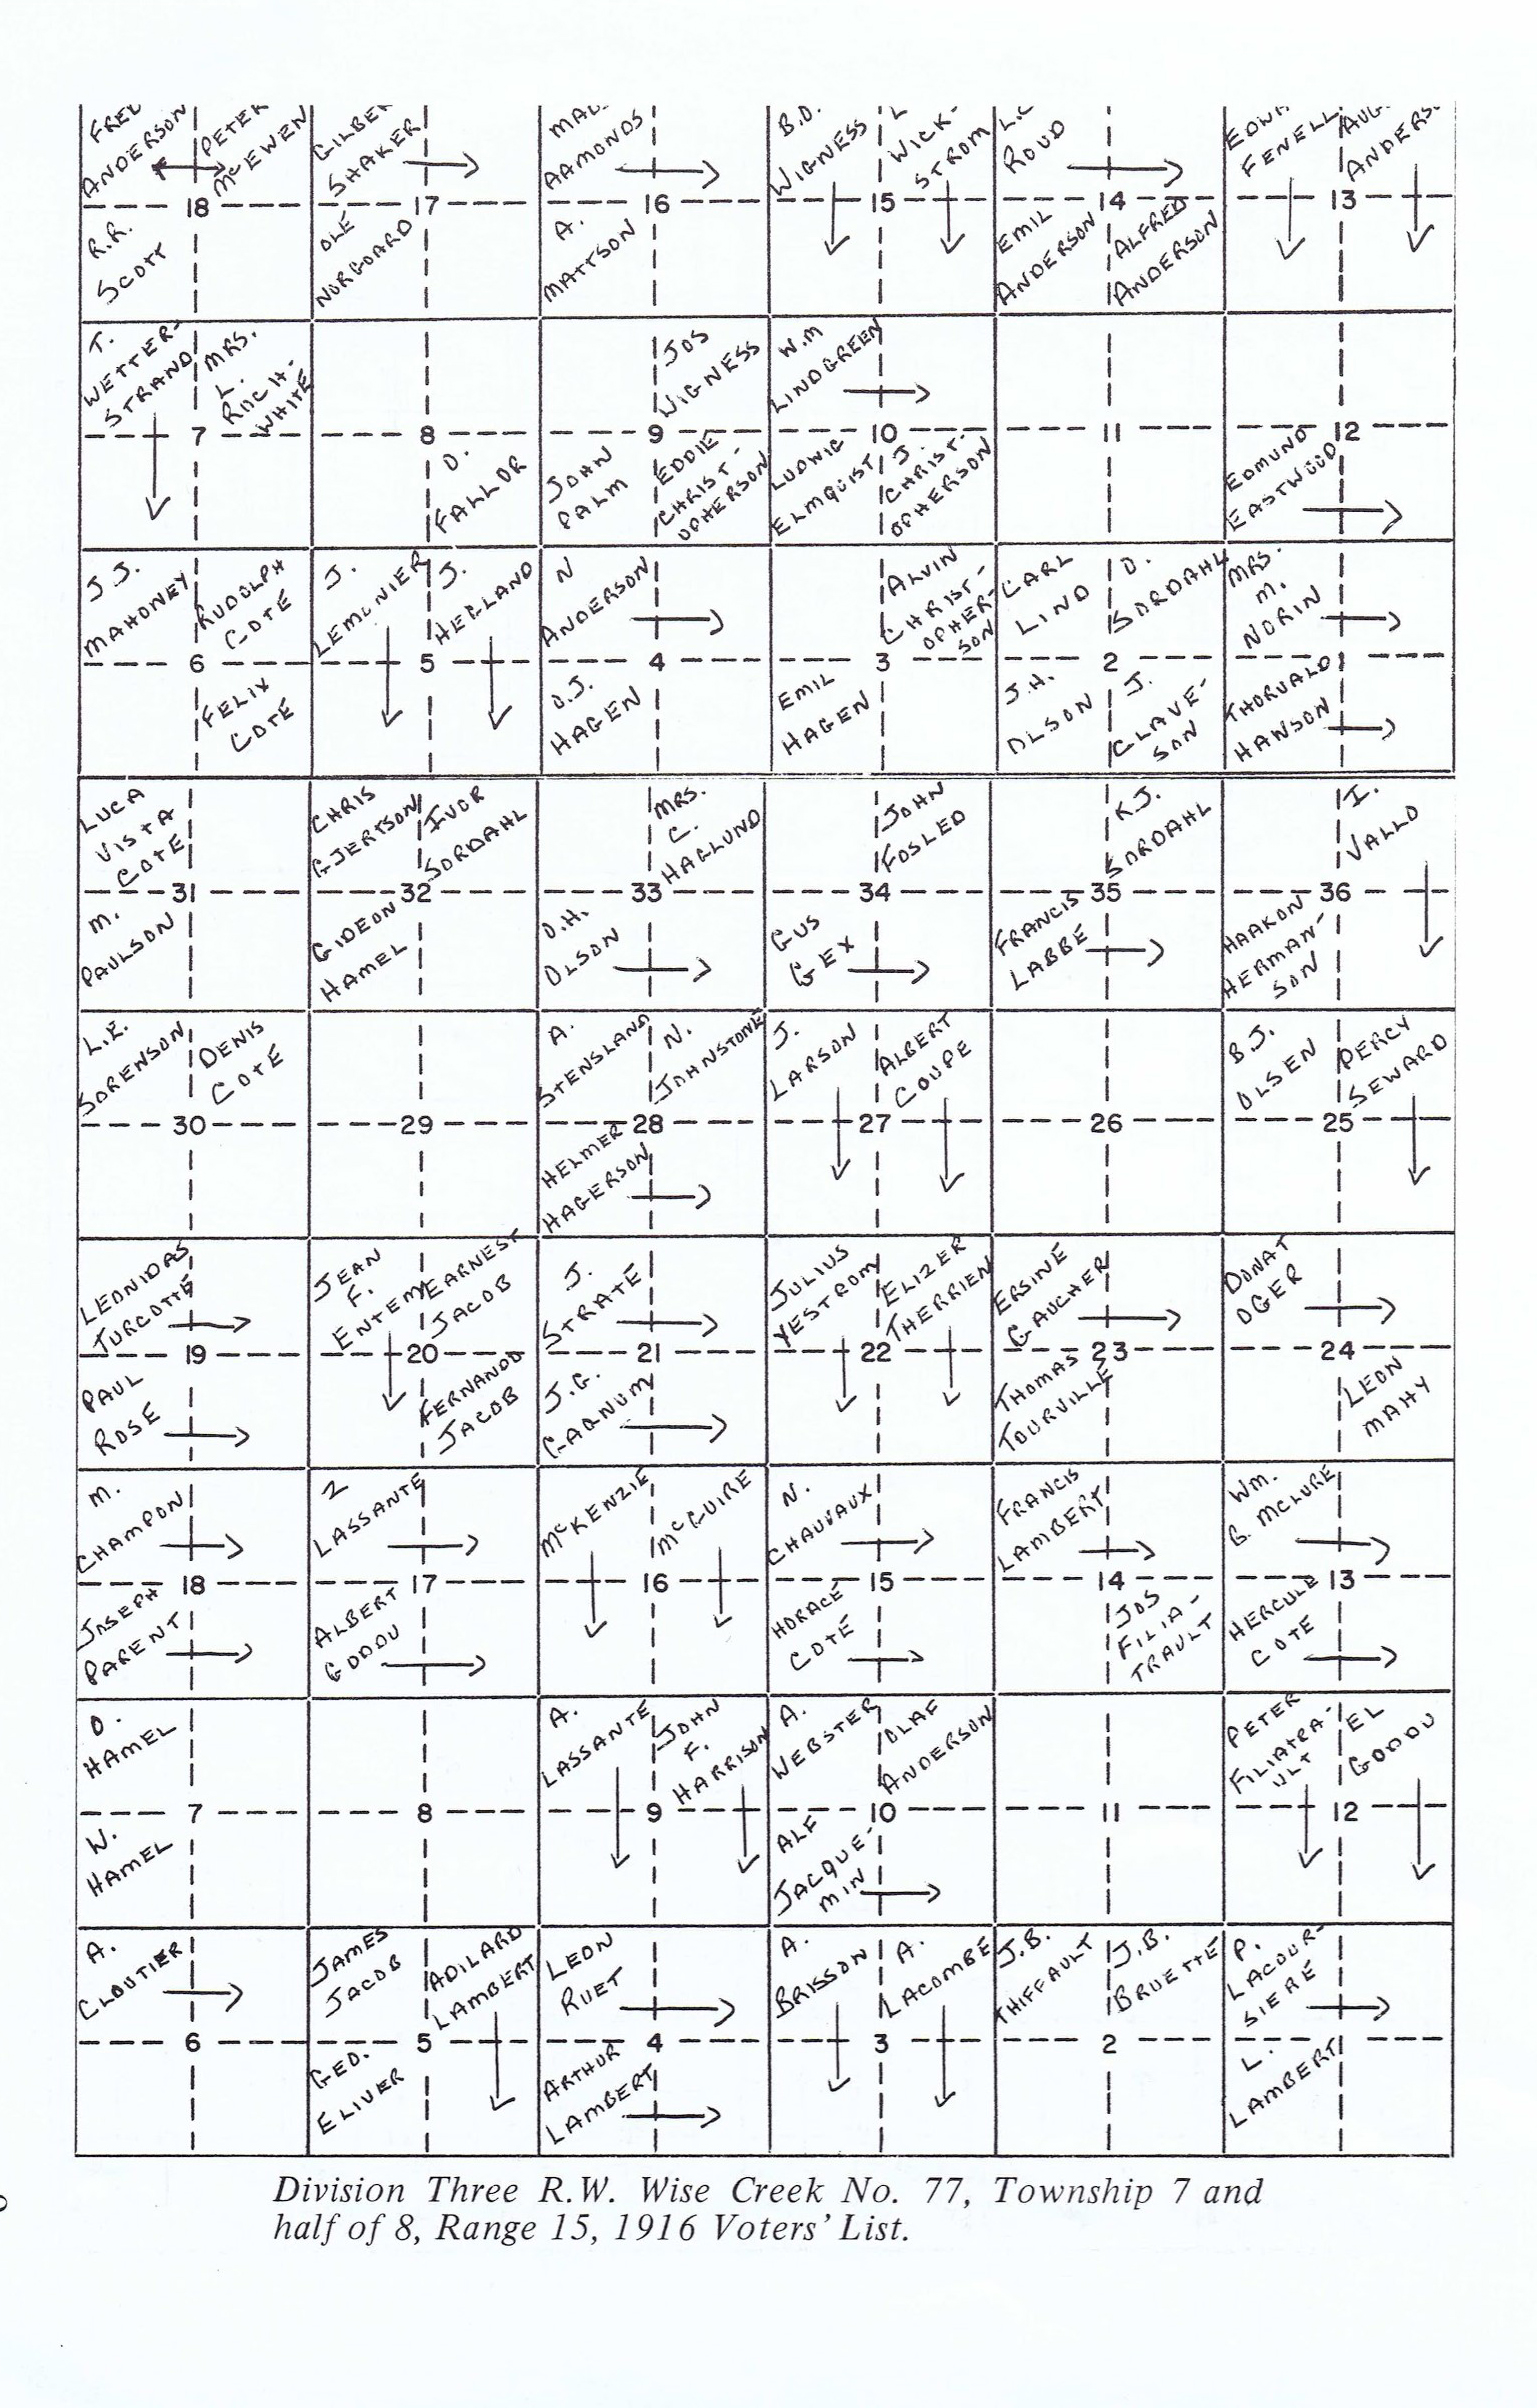 FRED
ANDERSON
PETER
McEWEN
GILBER
SHAKER
AAMONDS
B.D.
WIGNESS
WICK-
STROM
ROUD
FENELL
ANDERS
18
17
16
15
14
13
R.R.
SCOTT
OLE
NORGOARD
A.
MATTSON
EMIL
ANDERSON
ALFRED
ANDERSON
T.
WETTER-
STRAND
MRS.
L.
ROCH-
WHITE
JOS
WIGNESS
W.M
LINDGREEN
7
8
9
10
11
12
D.
FALLOR
JOHN
PALM
EDDIE
CHRIST-
OPHERSON
LUDWIG
ELMQUIST
J.
CHRIST-
OPHERSON
EDMUND
EASTWOOD
J.J.
MAHONEY
RUDOLPH
COTE
J.
LEMONIER
J.
HEGLAND
N
ANDERSON
ALVIN
CHRIST-
OPHER-
SON
CARL
LIND
O.
SORDAHL
MRS.
M.
NORIN
6
5
4
3
2
1
FELIX
COTE
O.J.
HAGEN
EMIL
HAGEN
J.H.
OLSON
J.
CLAVE-
SON
THORVALD
HAWSON
LUCA
VISTA
COTE
CHRIS
GJERTSON
IVOR
SORDAHL
MRS.
C.
HAGLUND
JOHN
FOSLED
K.J.
SORDAHL
I.
VALLO
31
32
33
34
35
36
M.
PAULSON
GIDEON
HAMEL
O.H.
OLSON
GUS
GEX
FRANCIS
LABBE
HAAKON
HERMAN-
SON
L.E.
SORENSON
DENIS
COTE
A.
STENSLAND
N.
JOHNSTONE
J.
LARSON
ALBERT
COUPE
B.J.
OLSEN
PERCY
SEWARD
30
29
28
27
26
25
HELMER
HAGERSON
LEONIDAS
TURCOTTE
JEAN
F.
ENTEM
EARNEST
JACOB
J.
STRATE
JULIUS
YESTROM
ELIZER
THERRIEN
ERSINE
GAUCHER
DONAT
OGER
19
20
21
22
23
24
PAUL
ROSE
FERNAND
JACOB
J.G.
GAGNUM
THOMAS
TOURVILLE
LEON
MAHY
M.
CHAMPON
Z
LASSANTE
McKENZIE
McGUIRE
N.
CHAUVAUX
FRANCIS
LAMBERT
WM.
B. McLURE
18
17
16
15
14
13
JOSEPH
PARENT
ALBERT
GODDU
HORACE
COTÉ
JOS
FILIA-
TRAULT
HERCULE
COTE
O.
HAMEL
A.
LASSANTE
JOHN
F.
HARRISON
A.
WEBSTER
OLAF
ANDERSON
PETER
FILIATRA-
ULT
EL
GODDU
7
8
9
10
11
12
W.
HAMEL
ALF
JACQUE-
MIN
A.
CLOUTIER
JAMES
JACOB
ADILARD
LAMBERT
LEON
RUET
A.
BRISSON
A.
LACOMBE
J.B.
THIFFAULT
J.B.
BRUETTE
P.
LACOUR-
SIERE
6
5
4
3
2
1
GEO.
ELIVER
ARTHUR
LAMBERT
L.
LAMBERT
Division Three R.W. Wise Creek No. 77, Township 7 and
half of 8, Range 15, 1916 Voters' List.